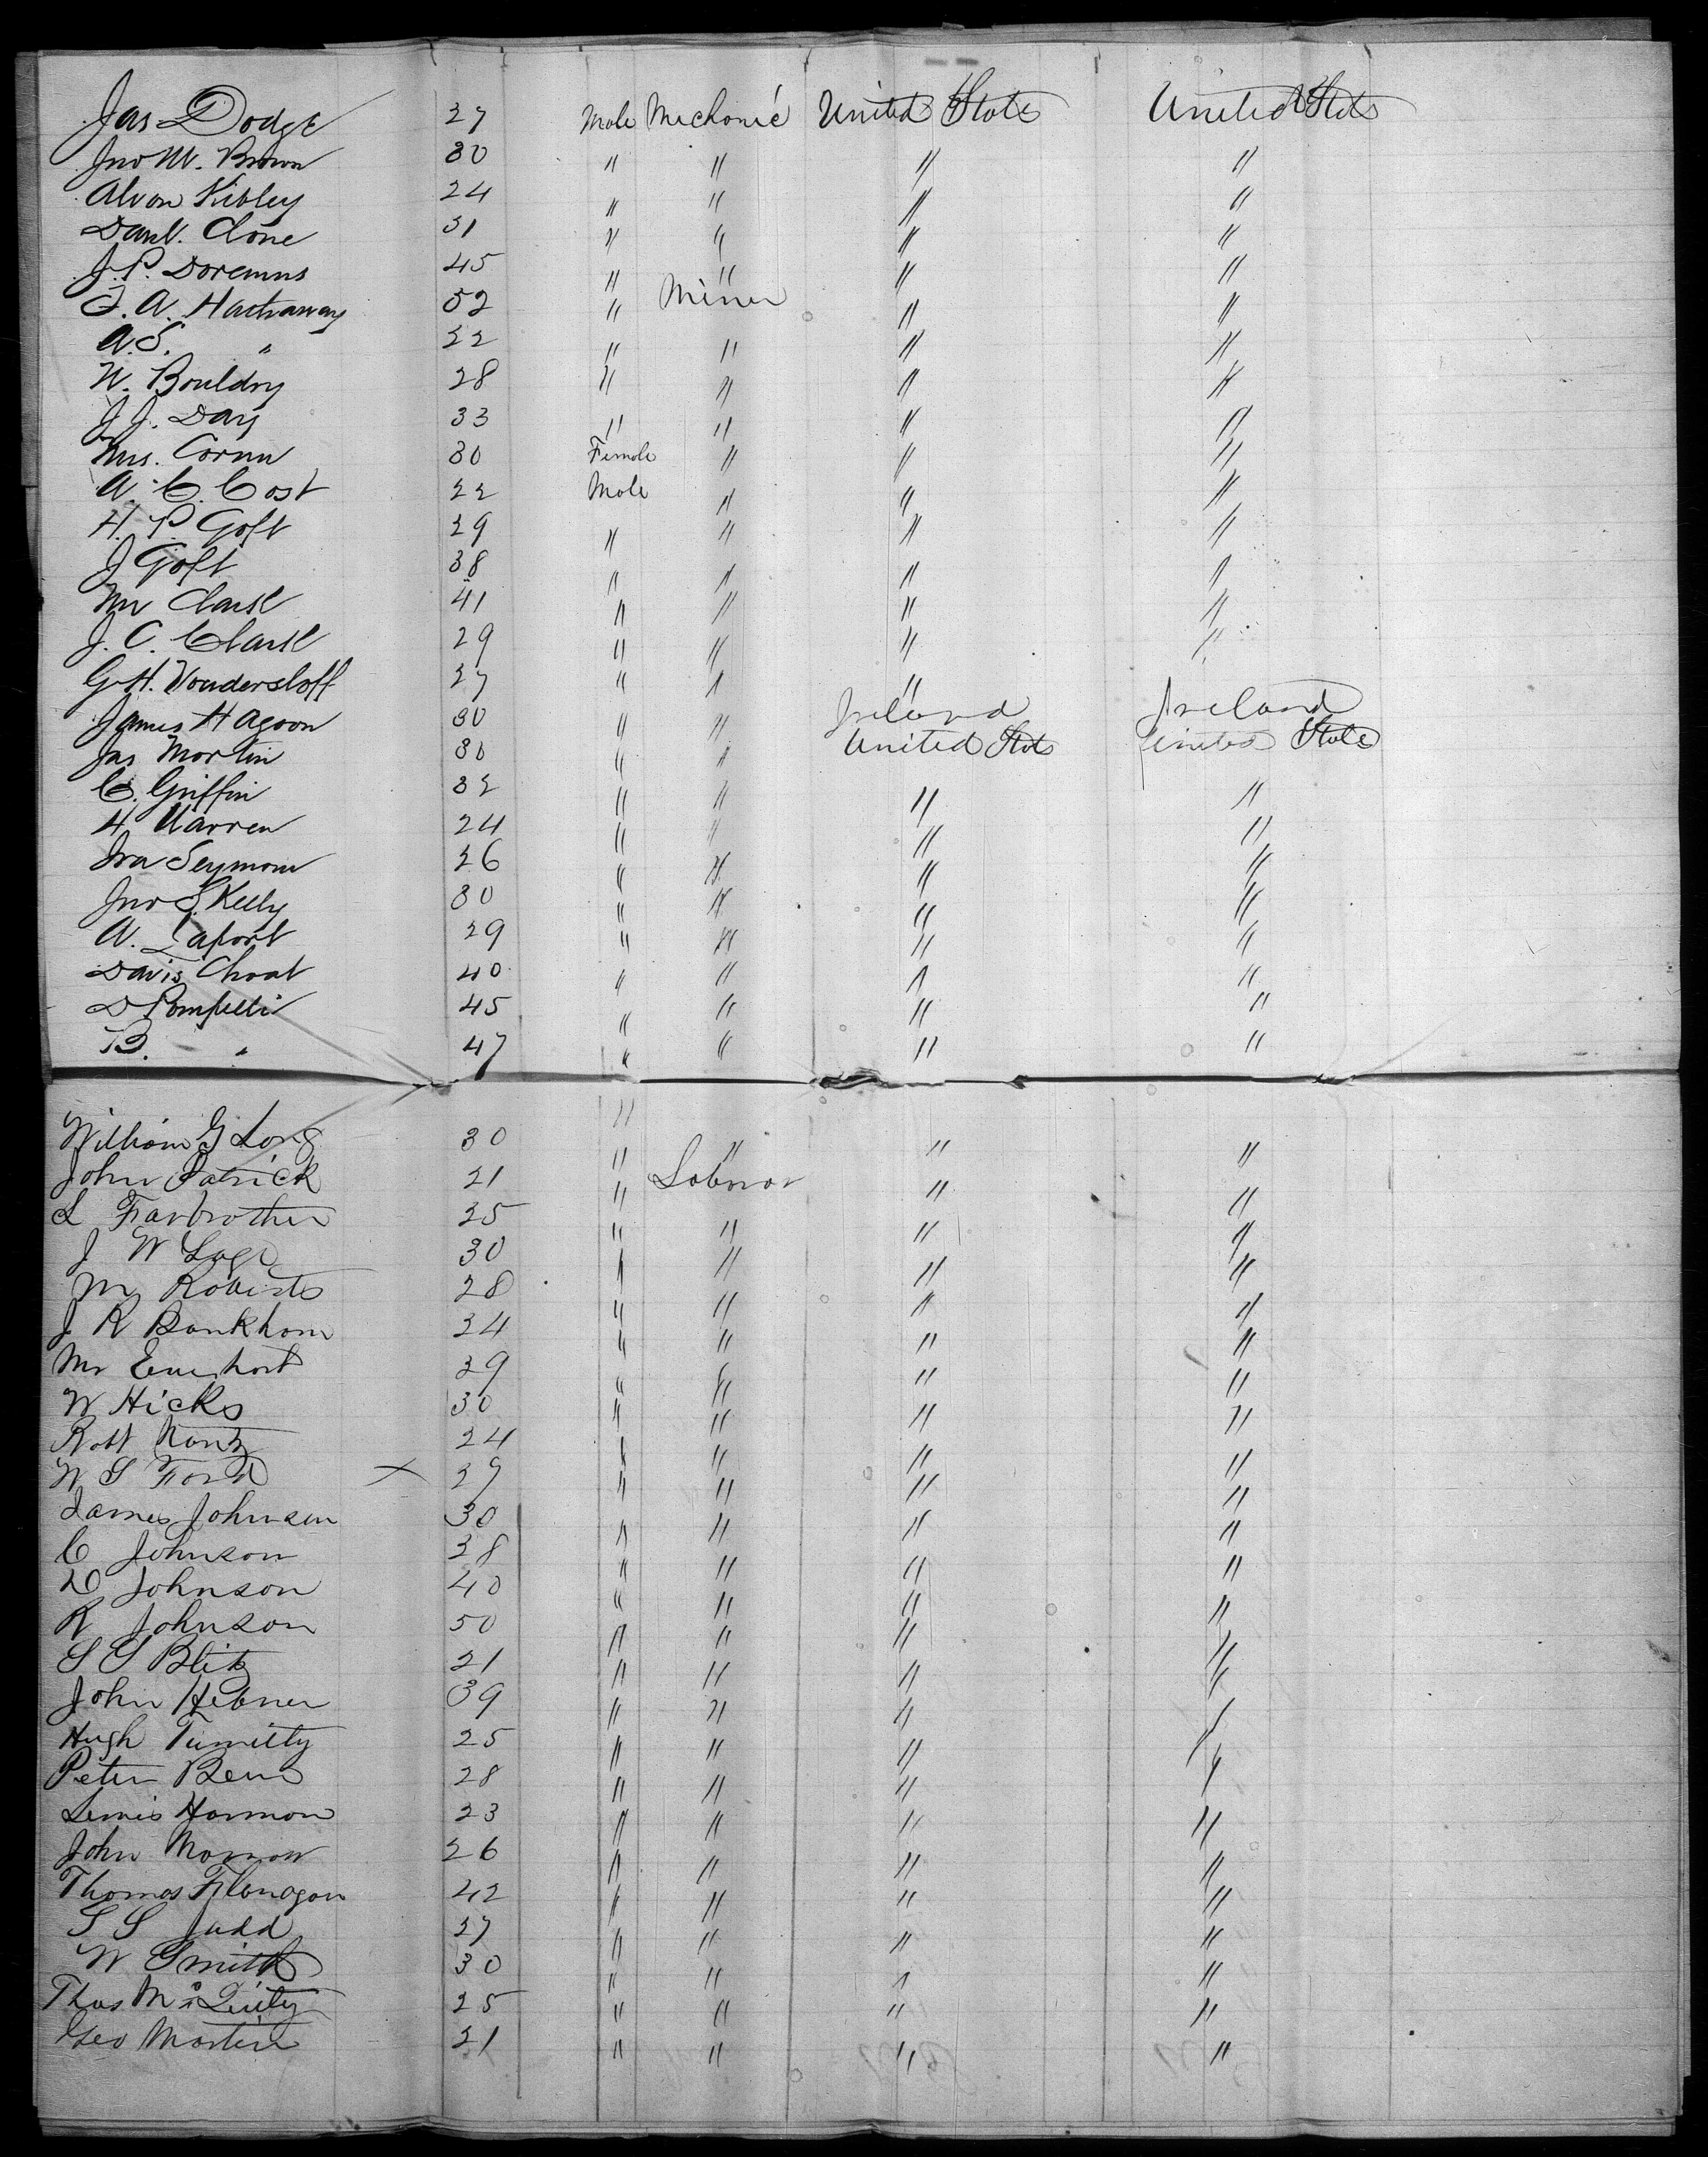 Jas Dodge 27 Male Mechanic United State United Stats
Jno M. Brown 30 " " " "
Alvon Sibley 24 " " " "
Danl. Clone 31 " " " "
J. P. Doremus 45 " " " "
F. A. Hathaway 52 " Miner " "
A. S. " 22 " " " "
W. Bouldry 28 " " " "
J J. Day 33 " " " "
Mrs. Cornn 30 Female " " "
A. C. Cost 22 Male " " "
H. P. Goft 29 " " " "
J Goft 38 " " " "
Mr Clark 41 " " " "
J. C. Clark 29 " " " "
G. H. Vondersloff 27 " " " "
James H Agoon 30 " " Ireland Ireland
Jas Martin 30 " " United Stats United State
C. Griffin 32 " " " "
H Warren 24 " " " "
Ira Seymour 26 " " " "
Jno S. Kelly 30 " " " "
A. Laport 29 " " " "
Davis Choat 40 " " " "
D Pompelli 45 " " " "
B. " 47 " " " "
"
William G Long 30 " " " "
John Patrick 21 " Laboror " "
L Farbrother 35 " " " "
J W Sage 30 " " " "
M Roberts 28 " " " "
J R Bankham 34 " " " "
Mr Everhart 39 " " " "
W Hicks 30 " " " "
Robt Nantz 24 " " " "
W S Ford × 27 " " " "
James Johnson 30 " " " "
C Johnson 38 " " " "
D Johnson 40 " " " "
R Johnson 50 " " " "
S S Blitz 21 " " " "
John Hebner 39 " " " "
Hugh Tumilty 25 " " " "
Peter Bem 28 " " " "
Lewis Harmon 23 " " " "
John Morrow 26 " " " "
Thomas Flanagan 42 " " " "
S S Judd 27 " " " "
W Smith 30 " " " "
Thos Mc Quilty 25 " " " "
Geo Martin 21 " " " "